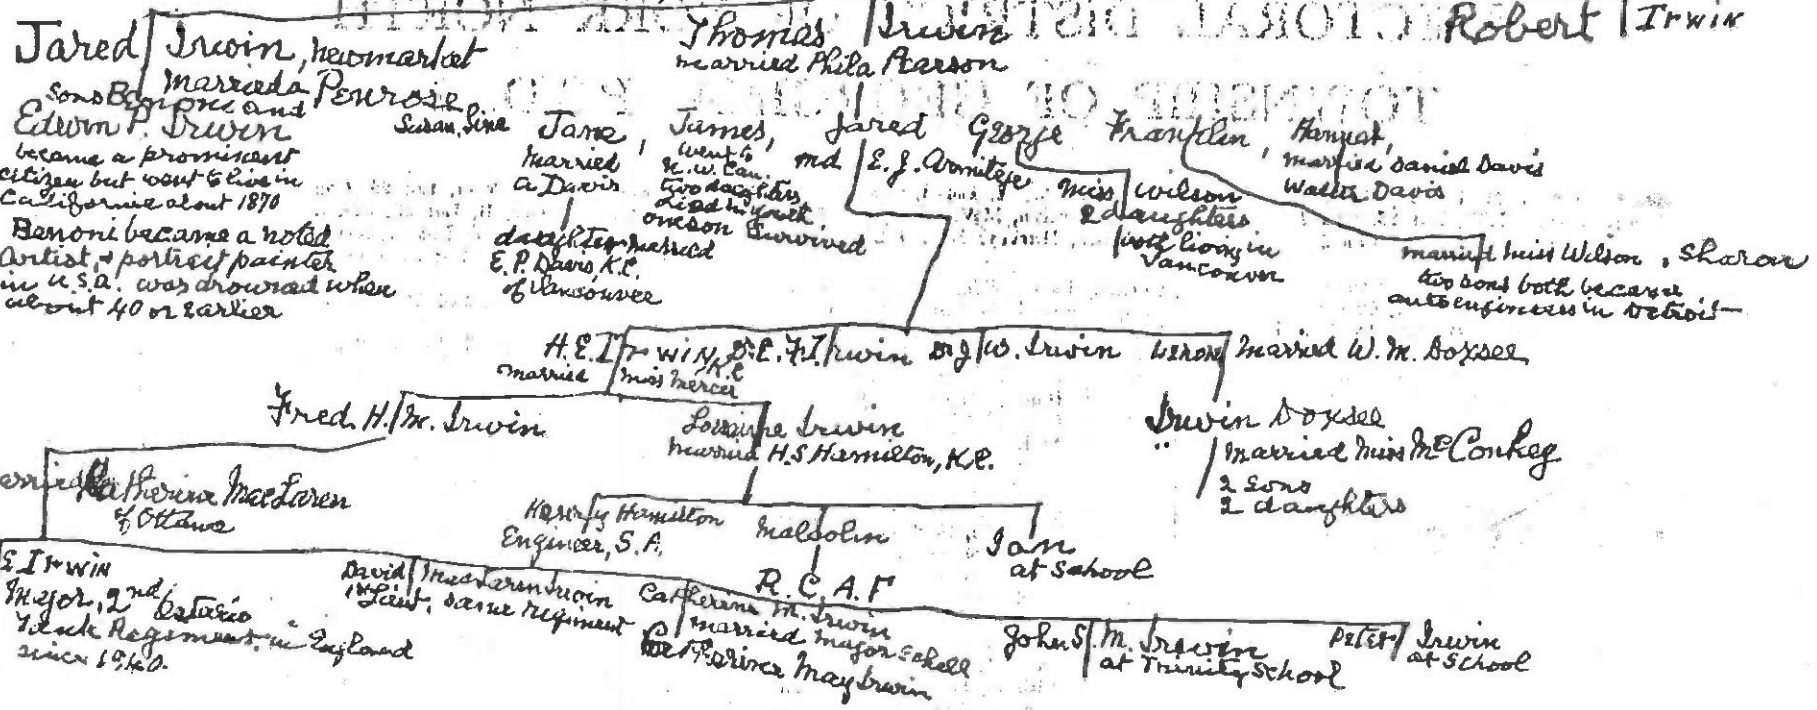 Jared Irwin, Newmarket
married a Penrose
Sons Benoni and
Edwin P. Irwin
became a prominent
citizen but went to live in
California about 1870
Benoni became a noted
Artist, & portrait painter
in U.S.A. was drowned when
about 40 or earlier
Susan, Sina
Thomas Irwin
married Phila Pearson
Robert Irwin
Jane,
married
a Davis
daughter married
E. P. Davis, K.C.
of Vancouver
James,
went to
N. W. Can.
two daughters
died in youth
one son survived
Jared
md E. J. Armitage
George
Miss Wilson
2 daughters
both living in
Vancouver
Franklin,
married Miss Wilson, Sharon
two sons both became
auto engineers in Detroit
married Daniel Davis
Walter Davis
H. E. Irwin, K.C.
married Miss Mercer
Dr. E. F. Irwin
Dr J W. Irwin
married W. M. Doxsee
Fred. H. M. Irwin
Lorraine Irwin
married H.S Hamilton, K.C.
Irwin Doxsee
married Miss McConkey
2 sons
2 daughters
Katherine MacLaren
of Ottawa
Hamilton
Engineer, S.A.
Malcolm
R.C.A.F
Ian
at School
E Irwin
Major, 2nd Ontario
Tank Regiment, in England
since 1940.
David MacLaren Irwin
1st Lieut, same regiment
Catherine M. Irwin
married Major Schell
Catherine May Irwin
John S. M. Irwin
at Trinity School
Peter Irwin
at School